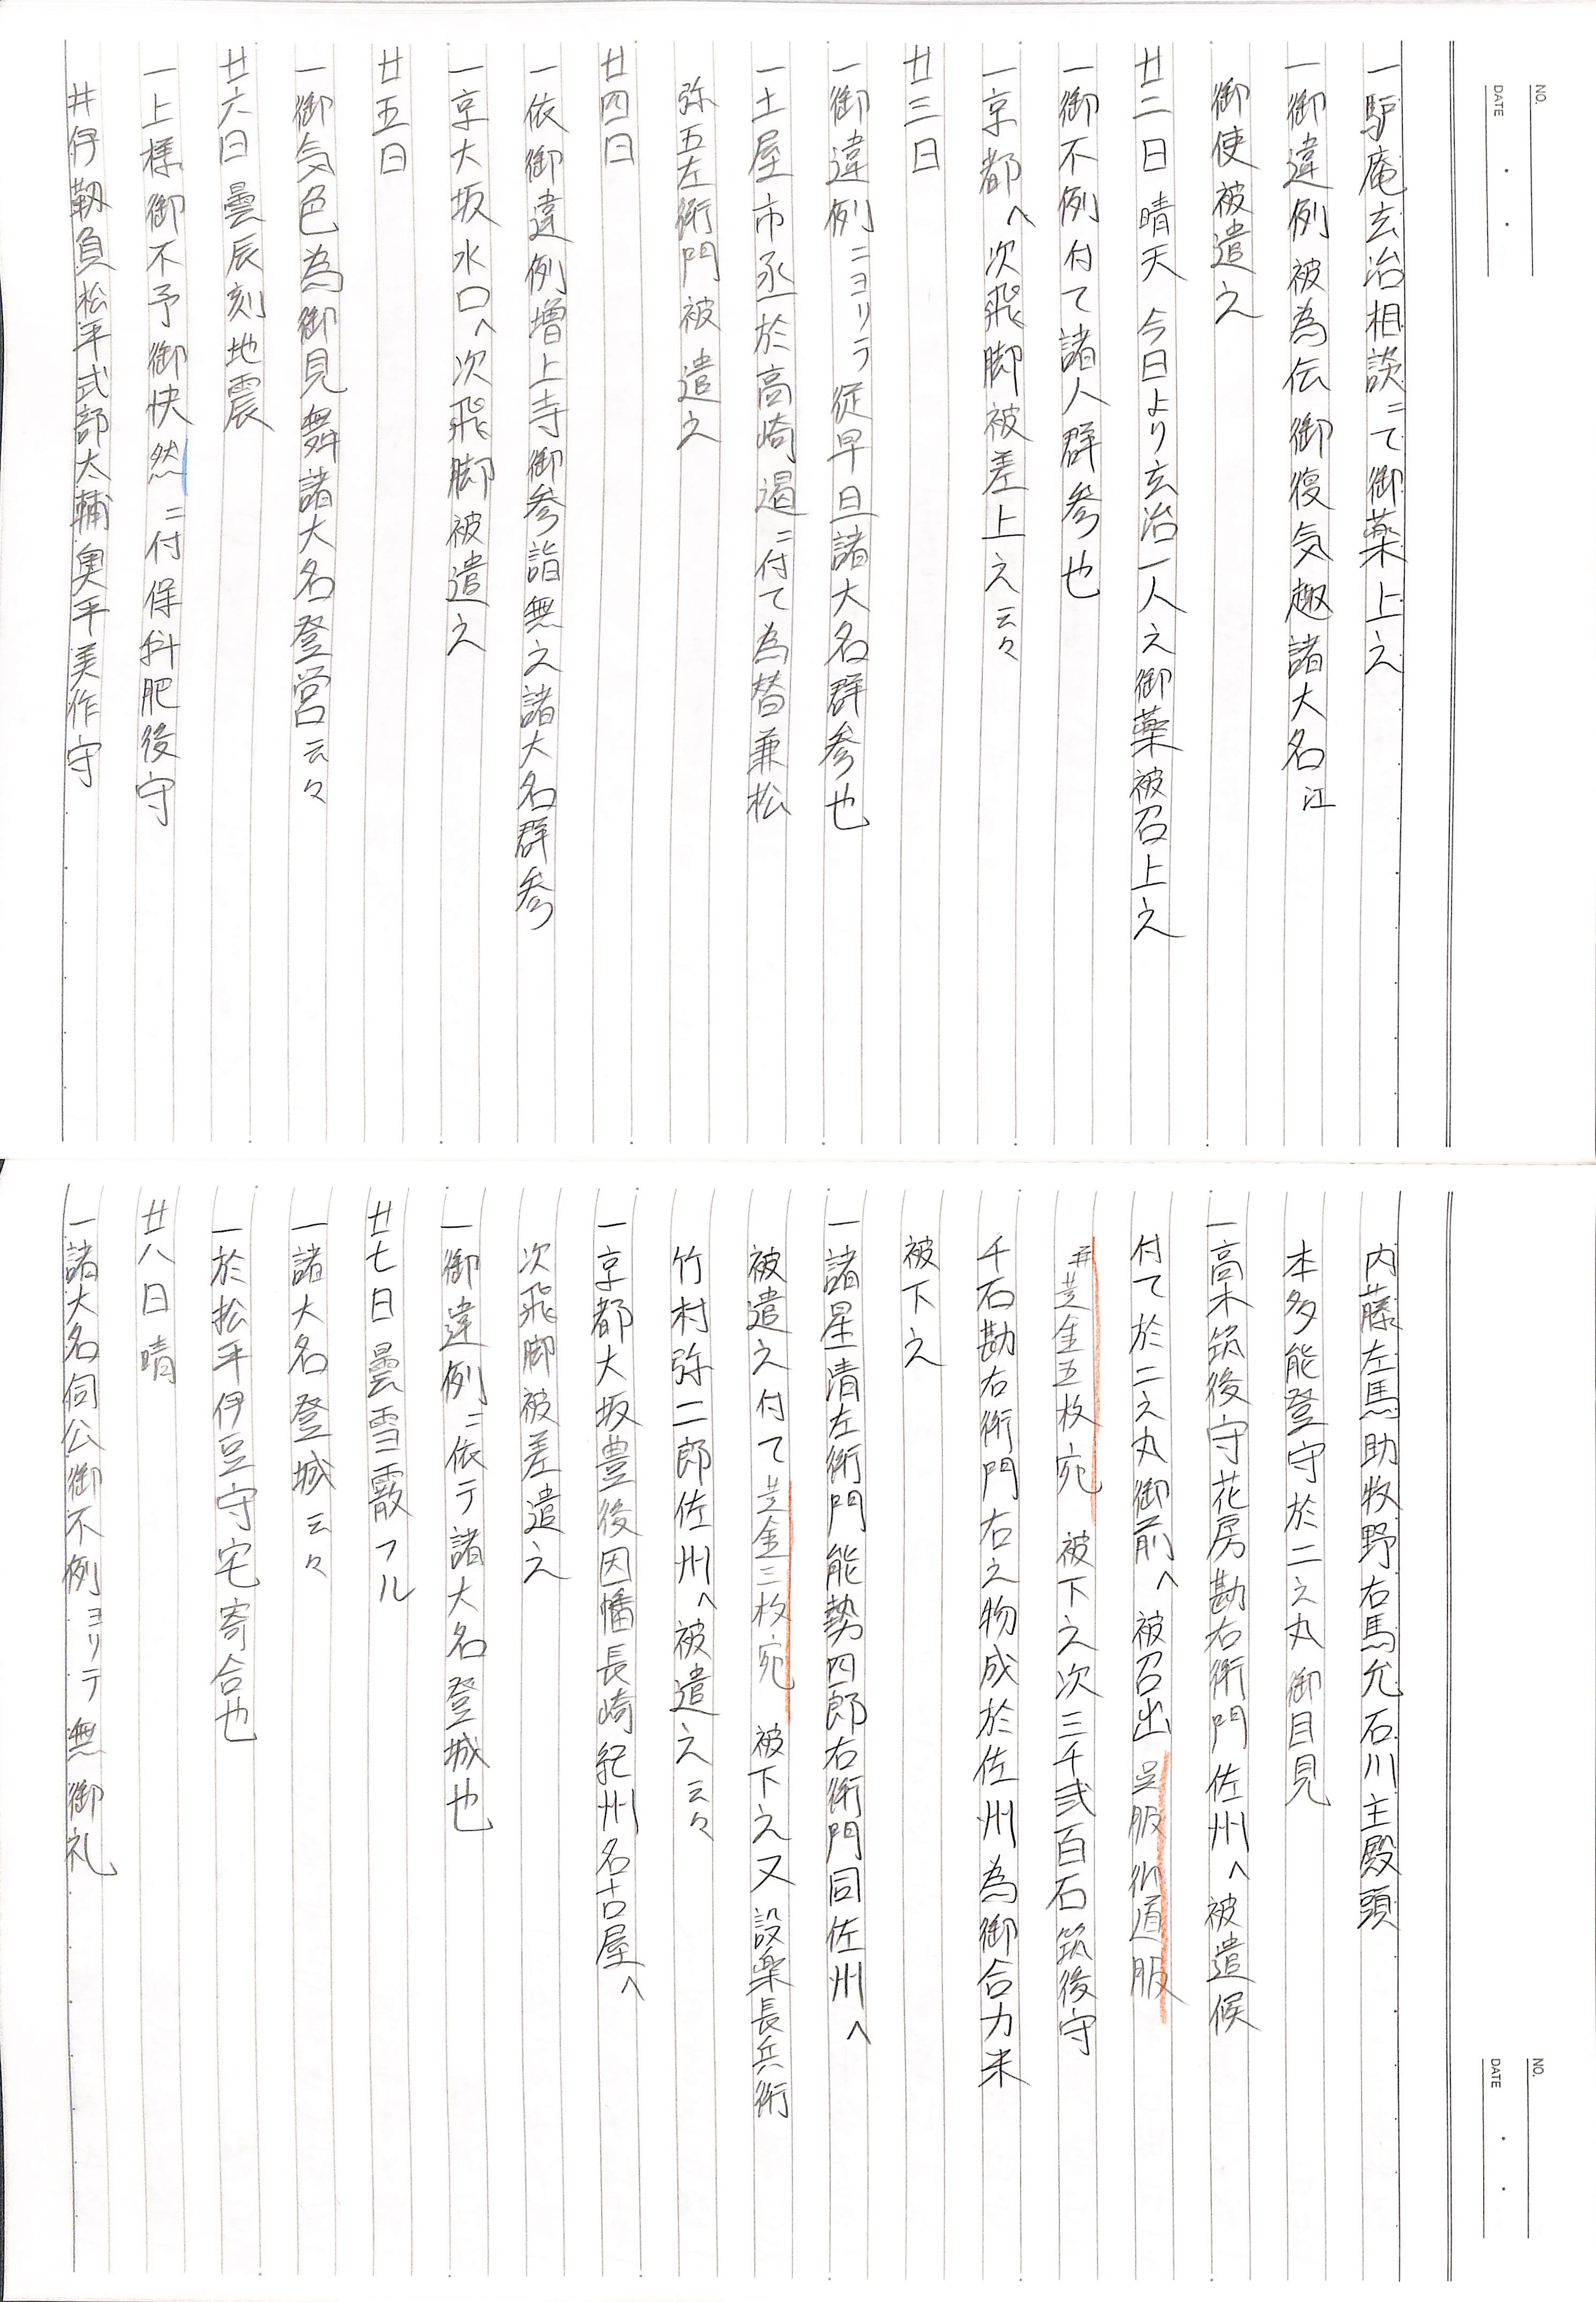 NO.
DATE
一驢庵玄治相談ニて御薬上之
一御違例被為伝御復気趣諸大名江
御使被遣之
廿二日晴天 今日より玄治一人之御薬被召上之
一御不例付て諸人群参也
一京都へ次飛脚被差上之云々
廿三日
一御違例ニヨリテ従早旦諸大名群参也
一土屋市丞於高崎遏ニ付て為替兼松
弥五左衛門被遣之
廿四日
一依御違例増上寺御参詣無之諸大名群参
一京大坂水口へ次飛脚被遣之
廿五日
一御気色為御見舞諸大名登営云々
廿六日曇辰刻地震
一上様御不予御快然ニ付保科肥後守
井伊靱負松平式部太輔奥平美作守
内藤左馬助牧野右馬允石川主殿頭
本多能登守於二之丸御目見
一高木筑後守花房勘右衛門佐州へ被遣候
付て於二之丸御前へ被召出呉服御道服
并芝金五枚宛 被下之次三千弐百石筑後守
千石勘右衛門右之物成於佐州為御合力米
被下之
一諸星清左衛門能勢四郎右衛門同佐州へ
被遣之付て芝金三枚宛 被下之又設楽長兵衛
竹村弥二郎佐州へ被遣之云々
一京都大坂豊後因幡長崎紀州名古屋へ
次飛脚被差遣之
一御違例ニ依テ諸大名登城也
廿七日曇雪霰フル
一諸大名登城云々
一於松平伊豆守宅寄合也
廿八日晴
一諸大名伺公御不例ヨリテ無御礼
NO.
DATE